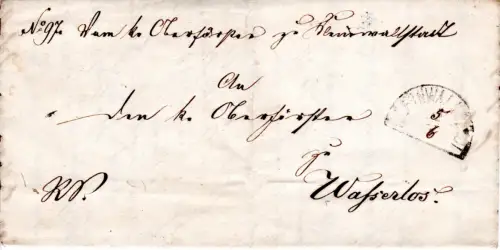 No 97. Vom k. Oberförster zu Kleinwallstadt
An
den k. Oberförster
5
6
zu
R.S. Wasserlos.